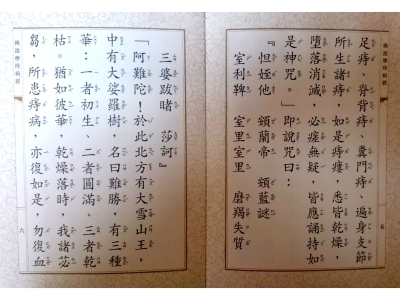 佛說療痔病經
足痔、脊背痔、糞門痔、遍身支節
所生諸痔,如是痔瘻,悉皆乾燥,
墮落消滅,必瘥無疑,皆應誦持如
是神咒。」即說咒曰:
『怛姪他 頞蘭帝 頞藍謎
室利鞞 室里室里 磨羯失質
五
三婆跋睹 莎訶』
「阿難陀!於此北方有大雪山王,
中有大娑羅樹,名曰難勝,有三種
華:一者初生、二者圓滿、三者乾
枯。猶如彼華,乾燥落時,我諸苾
芻,所患痔病,亦復如是,勿復血
佛說療痔病經
六